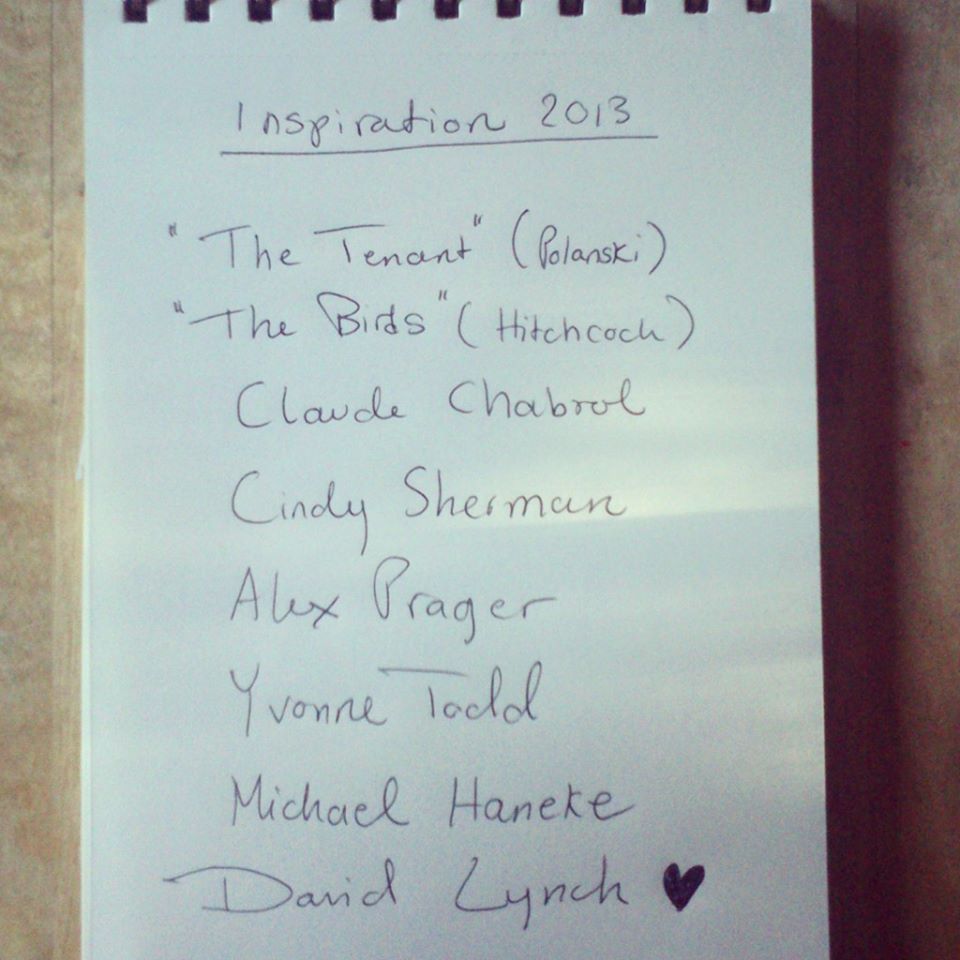 Inspiration 2013
"The Tenant" (Polanski)
"The Birds" (Hitchcock)
Claude Chabrol
Cindy Sherman
Alex Prager
Yvonne Todd
Michael Haneke
David Lynch ♥